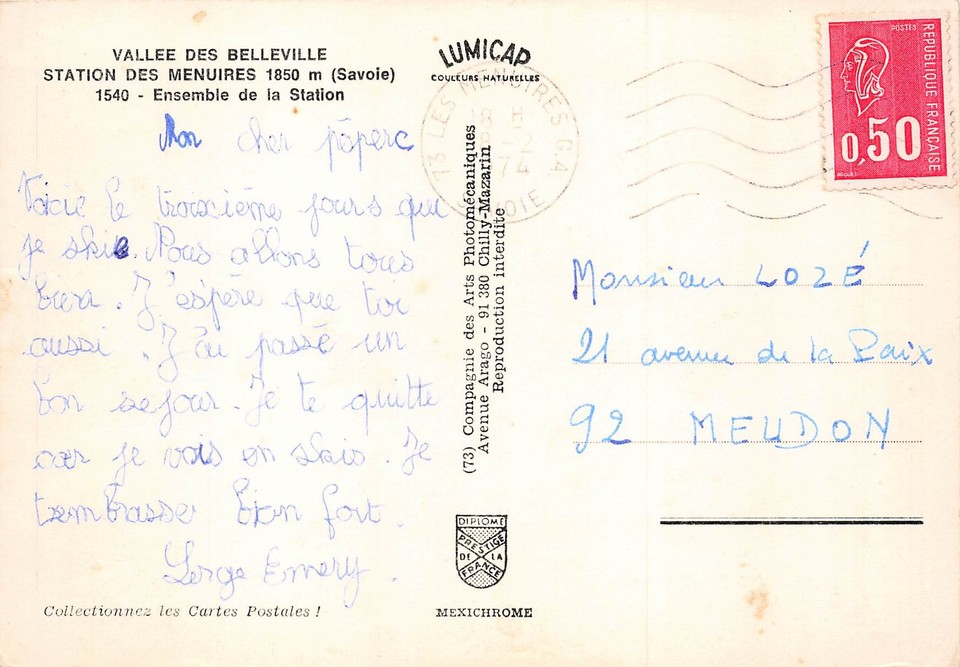 VALLEE DES BELLEVILLE
STATION DES MENUIRES 1850 m (Savoie)
1540 - Ensemble de la Station
Mon cher pàperc
Voicie le trouxième jours que
je skie. Nous allons tous
bien. J'espère que toi
aussi. J'ai passé un
bon sejour. Je te quitte
car je vois en skis. Je
t'embrasse bien fort.
Serge Emery.
Collectionnez les Cartes Postales !
LUMICAP
COULEURS NATURELLES
73 LES MENUIRES GA
8 H
8-2
74
SAVOIE
(73) Compagnie des Arts Photomécaniques
Avenue Arago - 91 380 Chilly-Mazarin
Reproduction interdite
DIPLOME
PRESTIGE
DE LA
FRANCE
MEXICHROME
POSTES
REPUBLIQUE FRANÇAISE
0,50
Monsieur LOZÉ
21 avenue de la Paix
92 MEUDON